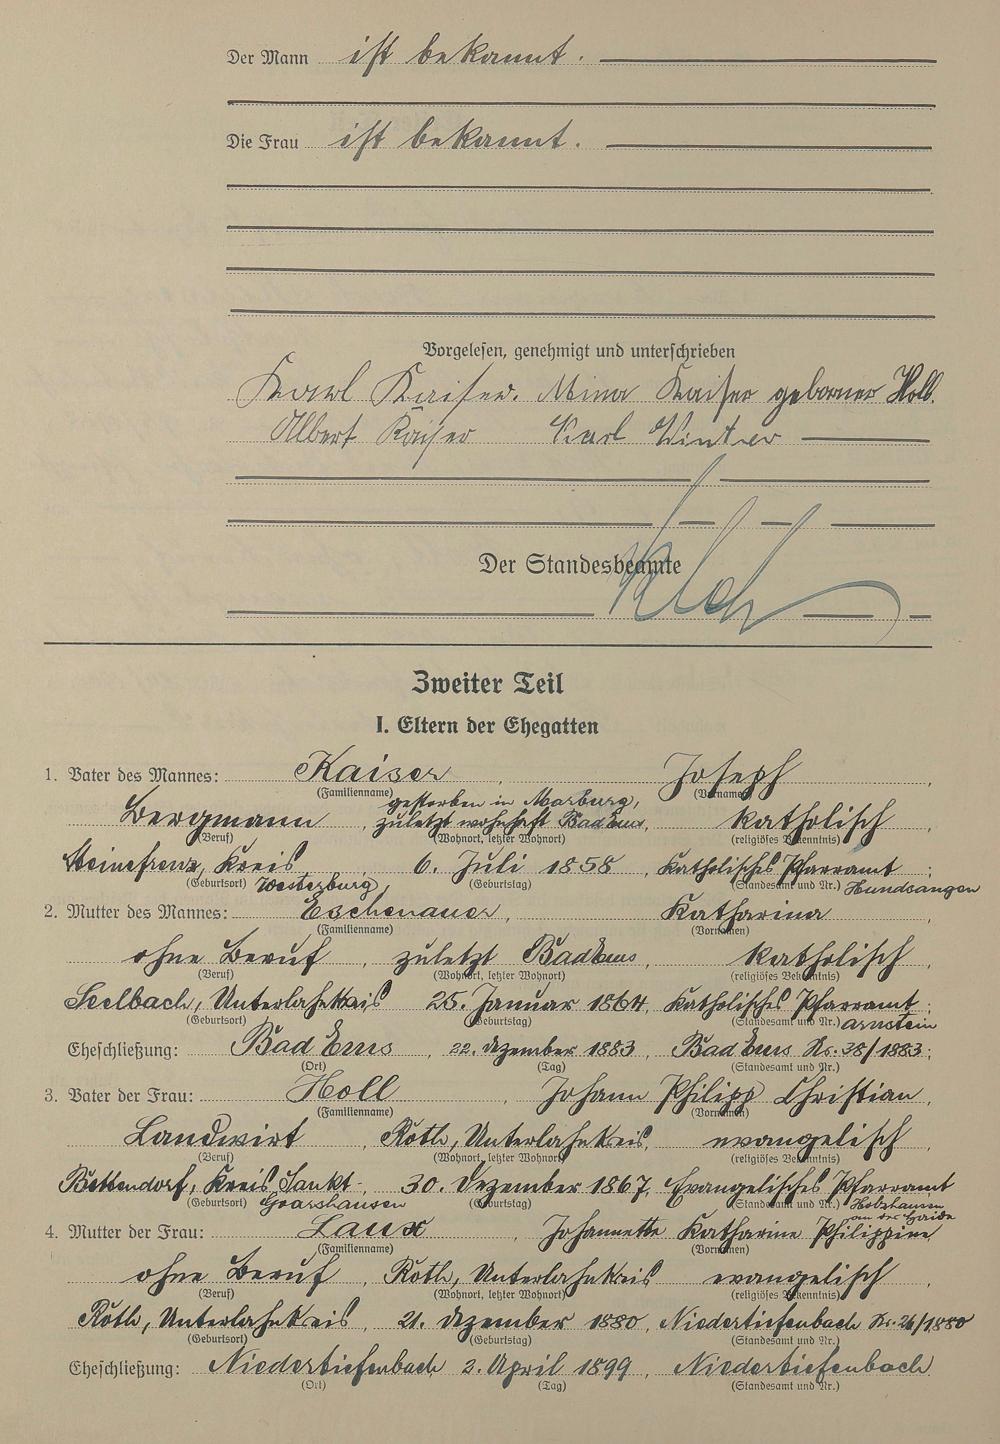 Der Mann ist bekannt.
Die Frau ist bekannt.
Vorgelesen, genehmigt und unterschrieben
Karl Kaiser. Mina Kaiser geborner Holl.
Albert Kaiser Karl Winter
Der Standesbeamte
Zweiter Teil
I. Eltern der Ehegatten
1. Vater des Mannes: Kaiser, Joseph,
(Familienname) (Vornamen)
gestorben in Marburg,
Bergmann, zuletzt wohnhaft Bad Ems, katholisch,
(Beruf) (Wohnort, letzter Wohnort) (religiöses Bekenntnis)
Steinefrenz, Kreis 6. Juli 1858, Katholisches Pfarramt;
(Geburtsort) Westerburg, (Geburtstag) (Standesamt und Nr.) Hundsangen
2. Mutter des Mannes: Eschenauer, Katharina,
(Familienname) (Vornamen)
ohne Beruf, zuletzt Bad Ems, katholisch,
(Beruf) (Wohnort, letzter Wohnort) (religiöses Bekenntnis)
Seelbach, Unterlahnkreis 25. Januar 1864, Katholisches Pfarramt;
(Geburtsort) (Geburtstag) (Standesamt und Nr.) Arnstein
Eheschließung: Bad Ems, 22. Dezember 1883, Bad Ems Nr. 38/1883;
(Ort) (Tag) (Standesamt und Nr.)
3. Vater der Frau: Holl, Johann Philipp Christian,
(Familienname) (Vornamen)
Landwirt, Roth, Unterlahnkreis, evangelisch,
(Beruf) (Wohnort, letzter Wohnort) (religiöses Bekenntnis)
Bettendorf, Kreis Sankt- 30. Dezember 1867, Evangelisches Pfarramt
(Geburtsort) Goarshausen (Geburtstag) (Standesamt und Nr.) Holzhausen
an der Haide
4. Mutter der Frau: Laux, Johannette Katharine Philippine
(Familienname) (Vornamen)
ohne Beruf, Roth, Unterlahnkreis evangelisch,
(Beruf) (Wohnort, letzter Wohnort) (religiöses Bekenntnis)
Roth, Unterlahnkreis, 21. Dezember 1880, Niedertiefenbach Nr. 26/1880
(Geburtsort) (Geburtstag) (Standesamt und Nr.)
Eheschließung: Niedertiefenbach, 2. April 1899, Niedertiefenbach
(Ort) (Tag) (Standesamt und Nr.)